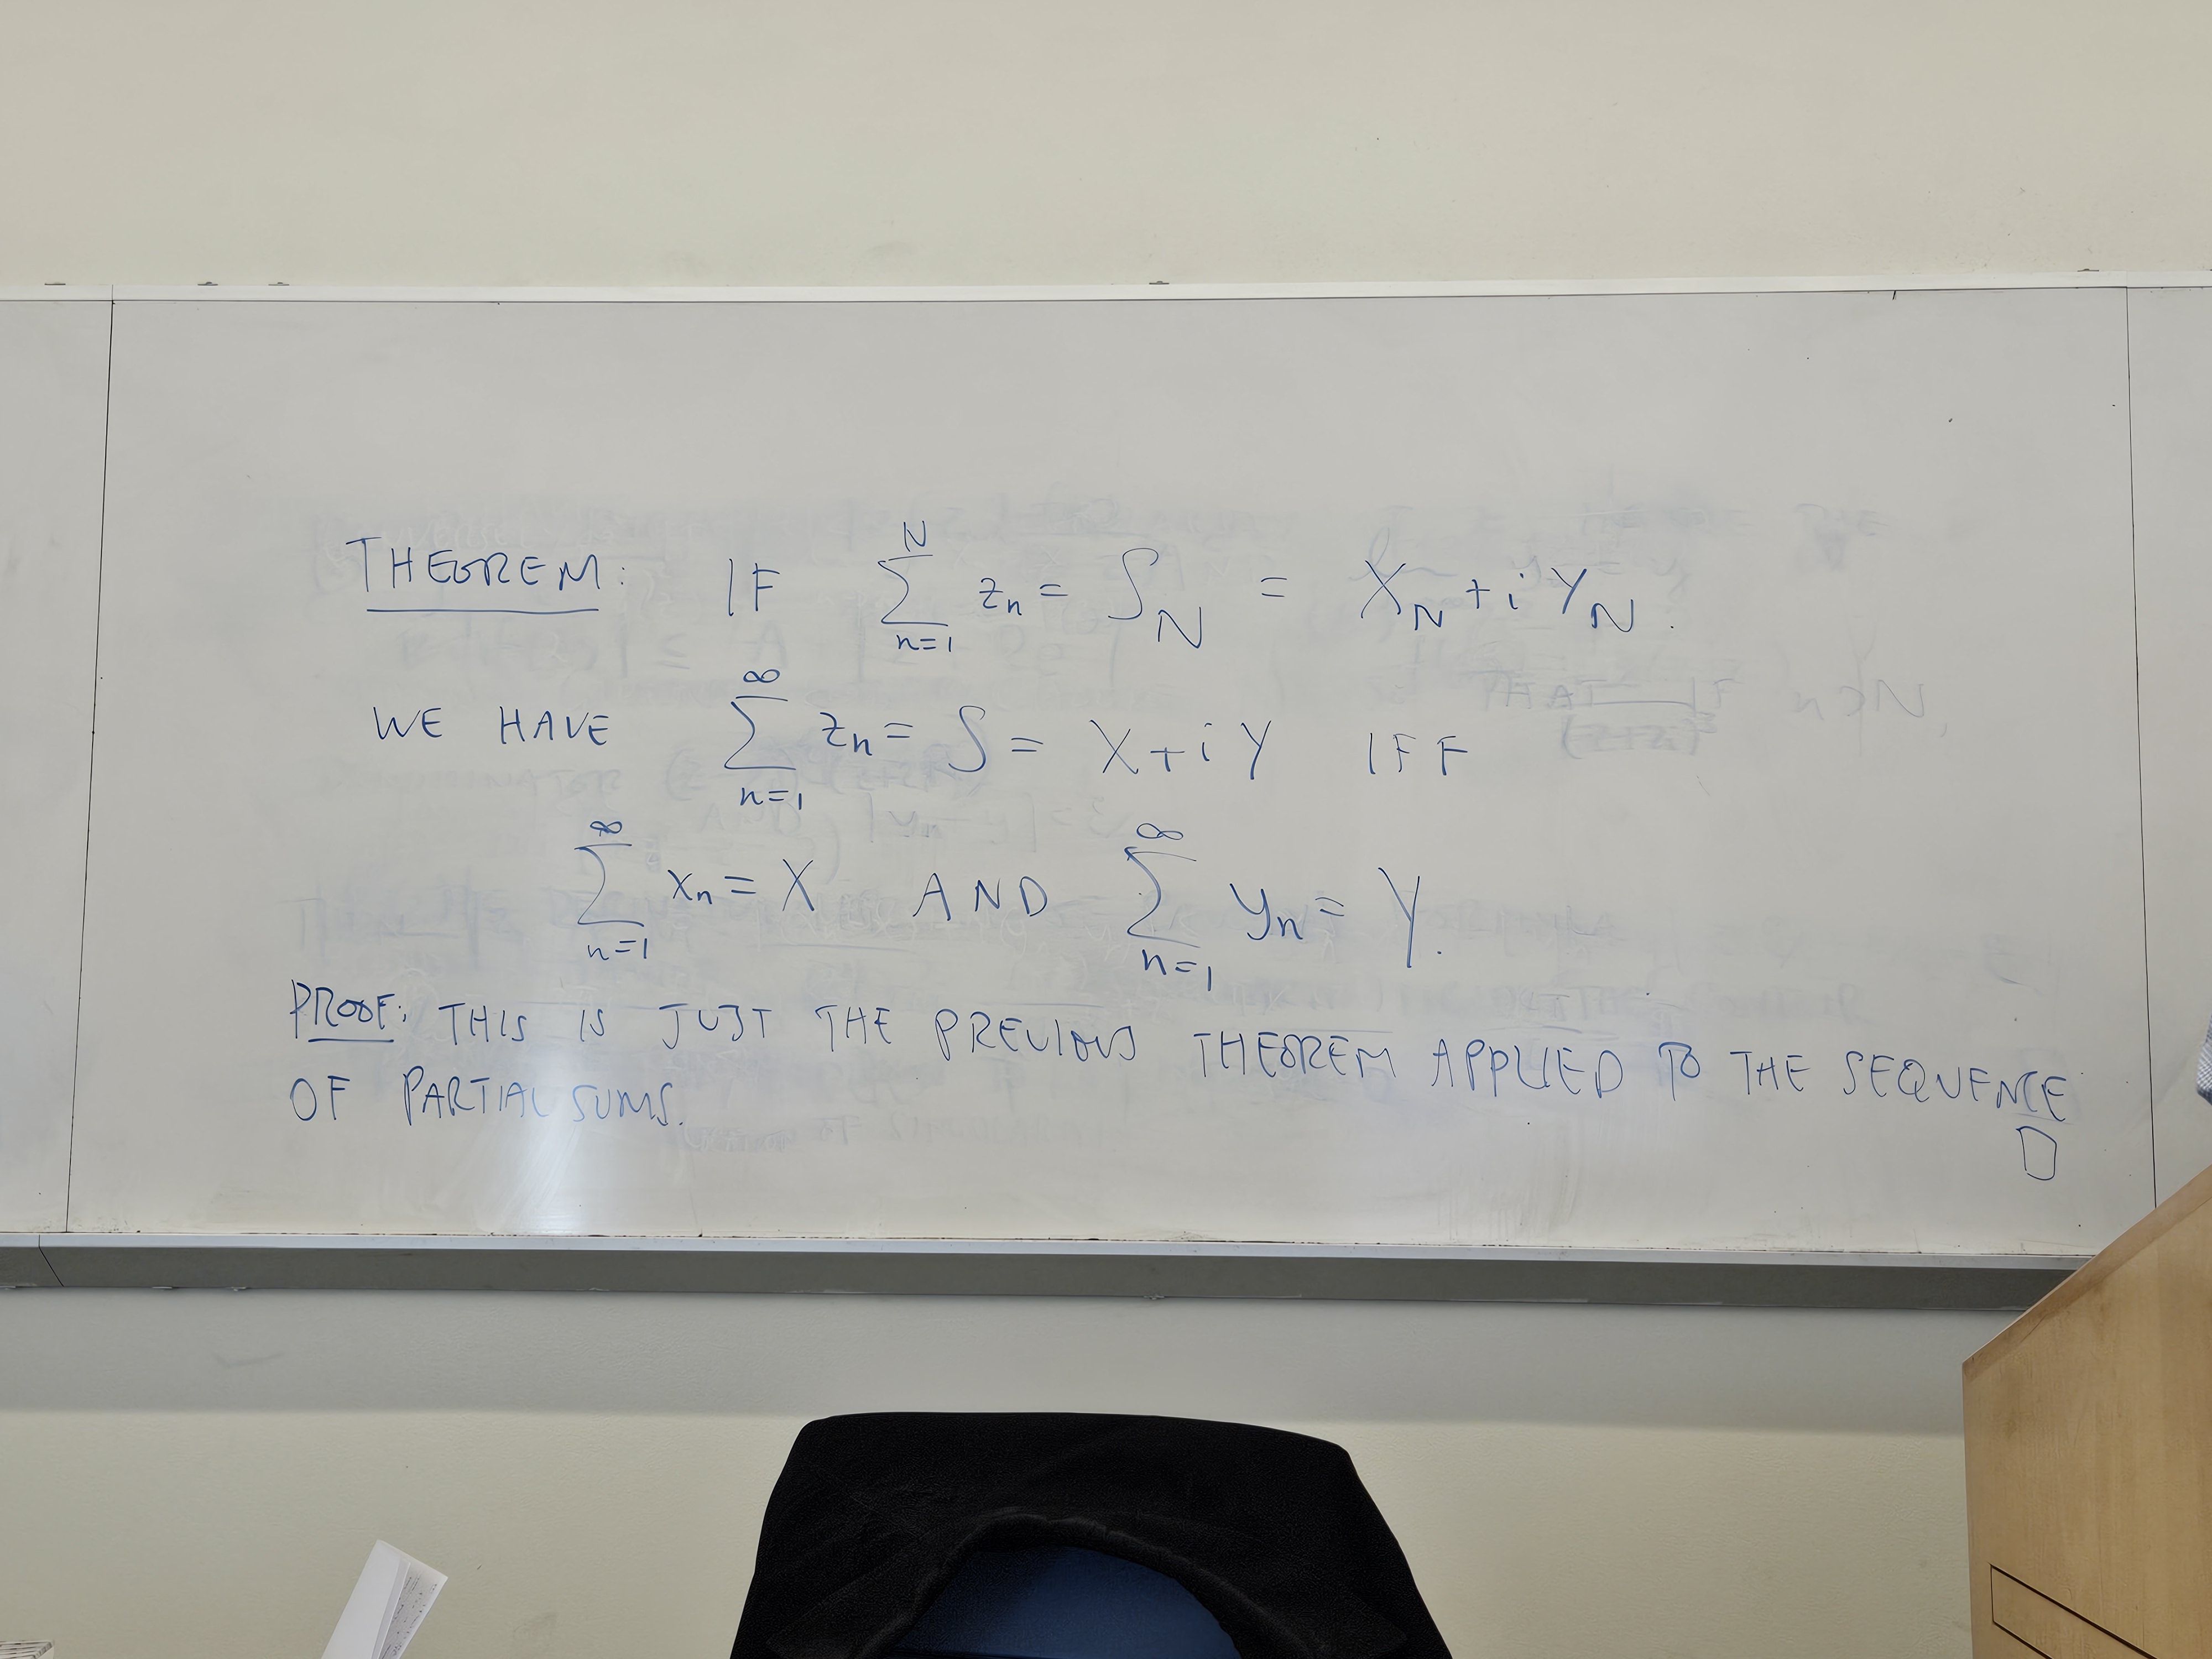 THEOREM: IF \sum_{n=1}^{N} z_n = S_N = X_N + i Y_N.
WE HAVE \sum_{n=1}^{\infty} z_n = S = X + i Y IFF
\sum_{n=1}^{\infty} x_n = X AND \sum_{n=1}^{\infty} y_n = Y.
PROOF: THIS IS JUST THE PREVIOUS THEOREM APPLIED TO THE SEQUENCE
OF PARTIAL SUMS.
□